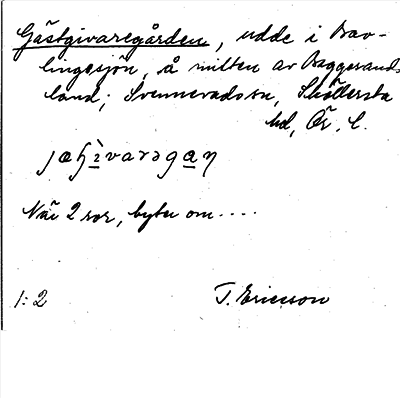 Gästgivaregården, udde i Bav-
lingesjön, å mitten av Baggesunds
land; Svennevads sn, Sköllersta
hd, Ör. l.
jæʂìvarəgaɳ
När 2 ror, byter om ....
1:2 T. Ericsson